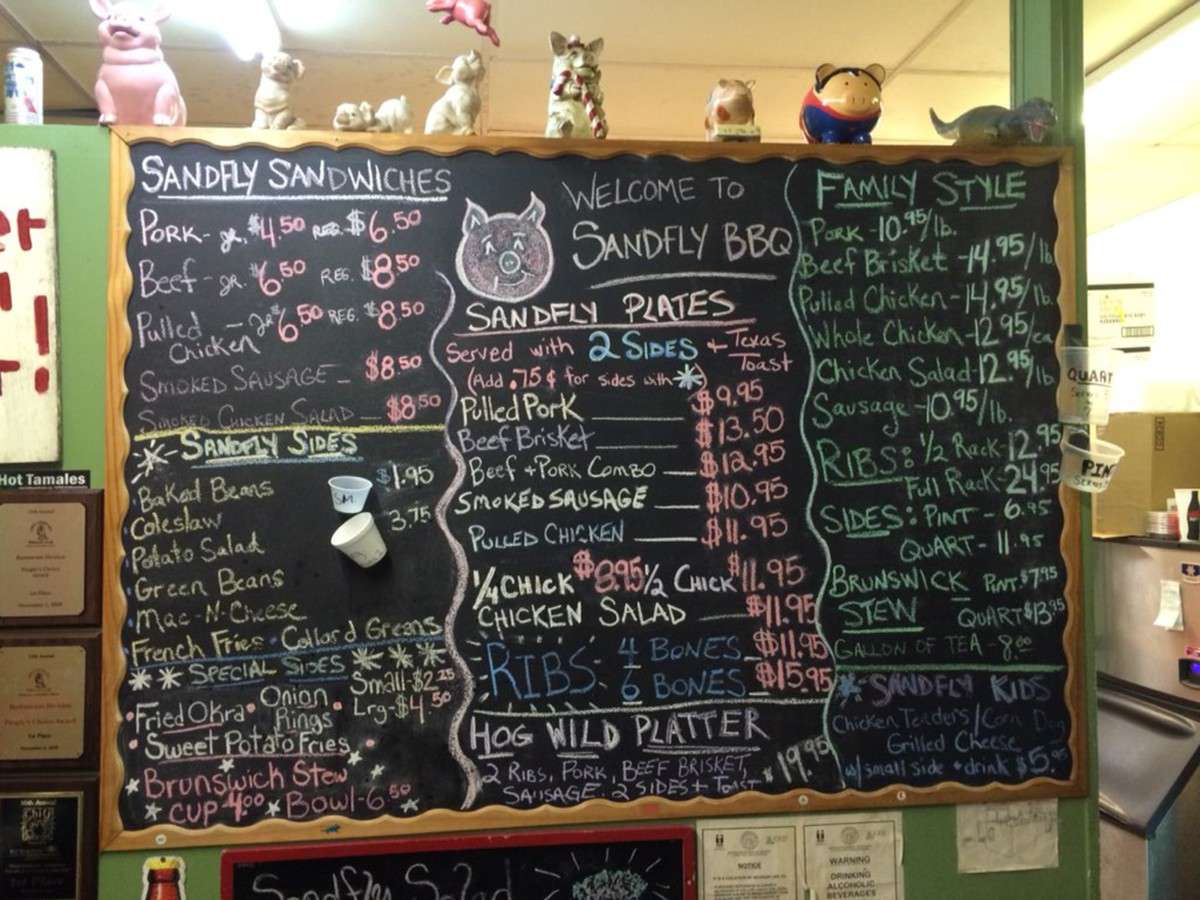 SANDFLY SANDWICHES
PORK- JR. $4.50 REG. $6.50
Beef - JR. $6.50 REG. $8.50
Pulled Chicken - JR $6.50 REG. $8.50
SMOKED SAUSAGE - $8.50
SMOKED CHICKEN SALAD - $8.50
* SANDFLY SIDES
Baked Beans $1.95
SM.
Coleslaw 3.75
Potato Salad
Green Beans
Mac-N-Cheese
French Fries · Collard Greens
** SPECIAL SIDES ***
Small-$2.25
Lrg-$4.50
·Fried Okra · Onion Rings
· Sweet Potato Fries ·
Brunswick Stew
CUP 4.00 * Bowl-6.50
WELCOME TO
SANDFLY BBQ
SANDFLY PLATES
Served with 2 SIDES + Texas Toast
(Add .75¢ for sides with *)
Pulled Pork $9.95
Beef Brisket $13.50
Beef + Pork Combo $12.95
SMOKED SAUSAGE $10.95
PULLED CHICKEN $11.95
1/4 CHICK $8.95 1/2 CHICK $11.95
CHICKEN SALAD $11.95
RIBS- 4 BONES $11.95
6 BONES $15.95
HOG WILD PLATTER
2 RIBS, PORK, BEEF BRISKET, $19.95
SAUSAGE, 2 SIDES + TOAST
FAMILY STYLE
Pork -10.95/lb.
Beef Brisket -14.95/lb
Pulled Chicken-14.95/lb.
Whole Chicken-12.95/ea
Chicken Salad-12.95/lb
Sausage -10.95/lb.
RIBS: 1/2 Rack-12.95
Full Rack-24.95
SIDES: PINT - 6.95
QUART - 11.95
BRUNSWICK STEW PINT $7.95
QUART $13.95
GALLON OF TEA - 8.00
* SANDFLY KIDS
Chicken Tenders/Corn Dog
Grilled Cheese
w/ small side + drink $5.95
QUART
PINT
Hot Tamales
Sandfly Salad
NOTICE
WARNING
DRINKING
ALCOHOLIC
BEVERAGES